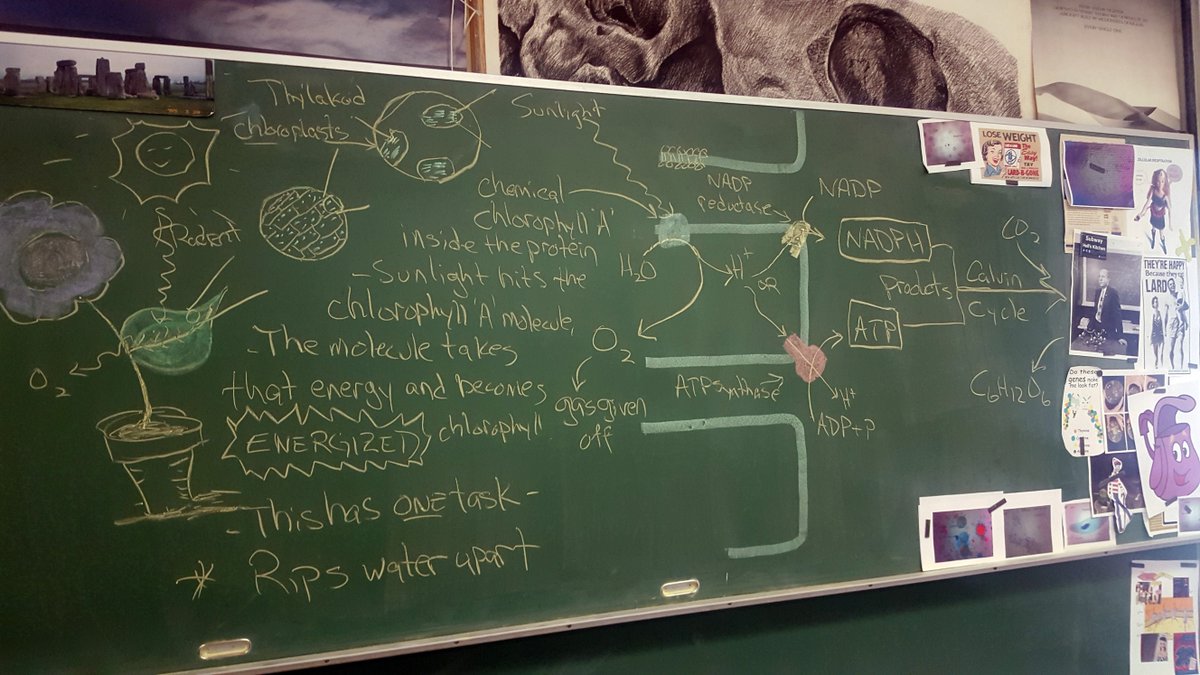 Thylakod
chloroplasts
Sunlight
chemical
chlorophyll "A"
inside the protein
- Sunlight hits the
chlorophyll 'A' molecule,
- The molecule takes
that energy and becomes
ENERGIZED chlorophyll
- This has ONE task -
* Rips water apart
O2
H2O
O2
gas given
off
NADP
reductase
NADP
H+
OR
NADPH
ATP
Products
ATP synthase
H+
ADP+P
CO2
Calvin
Cycle
C6H12O6
LOSE WEIGHT
The
Easy
Way!
TRY
LARD-B-GONE
CELLULAR RESPIRATION
Subway
Hell's Kitchen
THEY'RE HAPPY
Because they eat
LARD
Do these
genes make
me look fat?